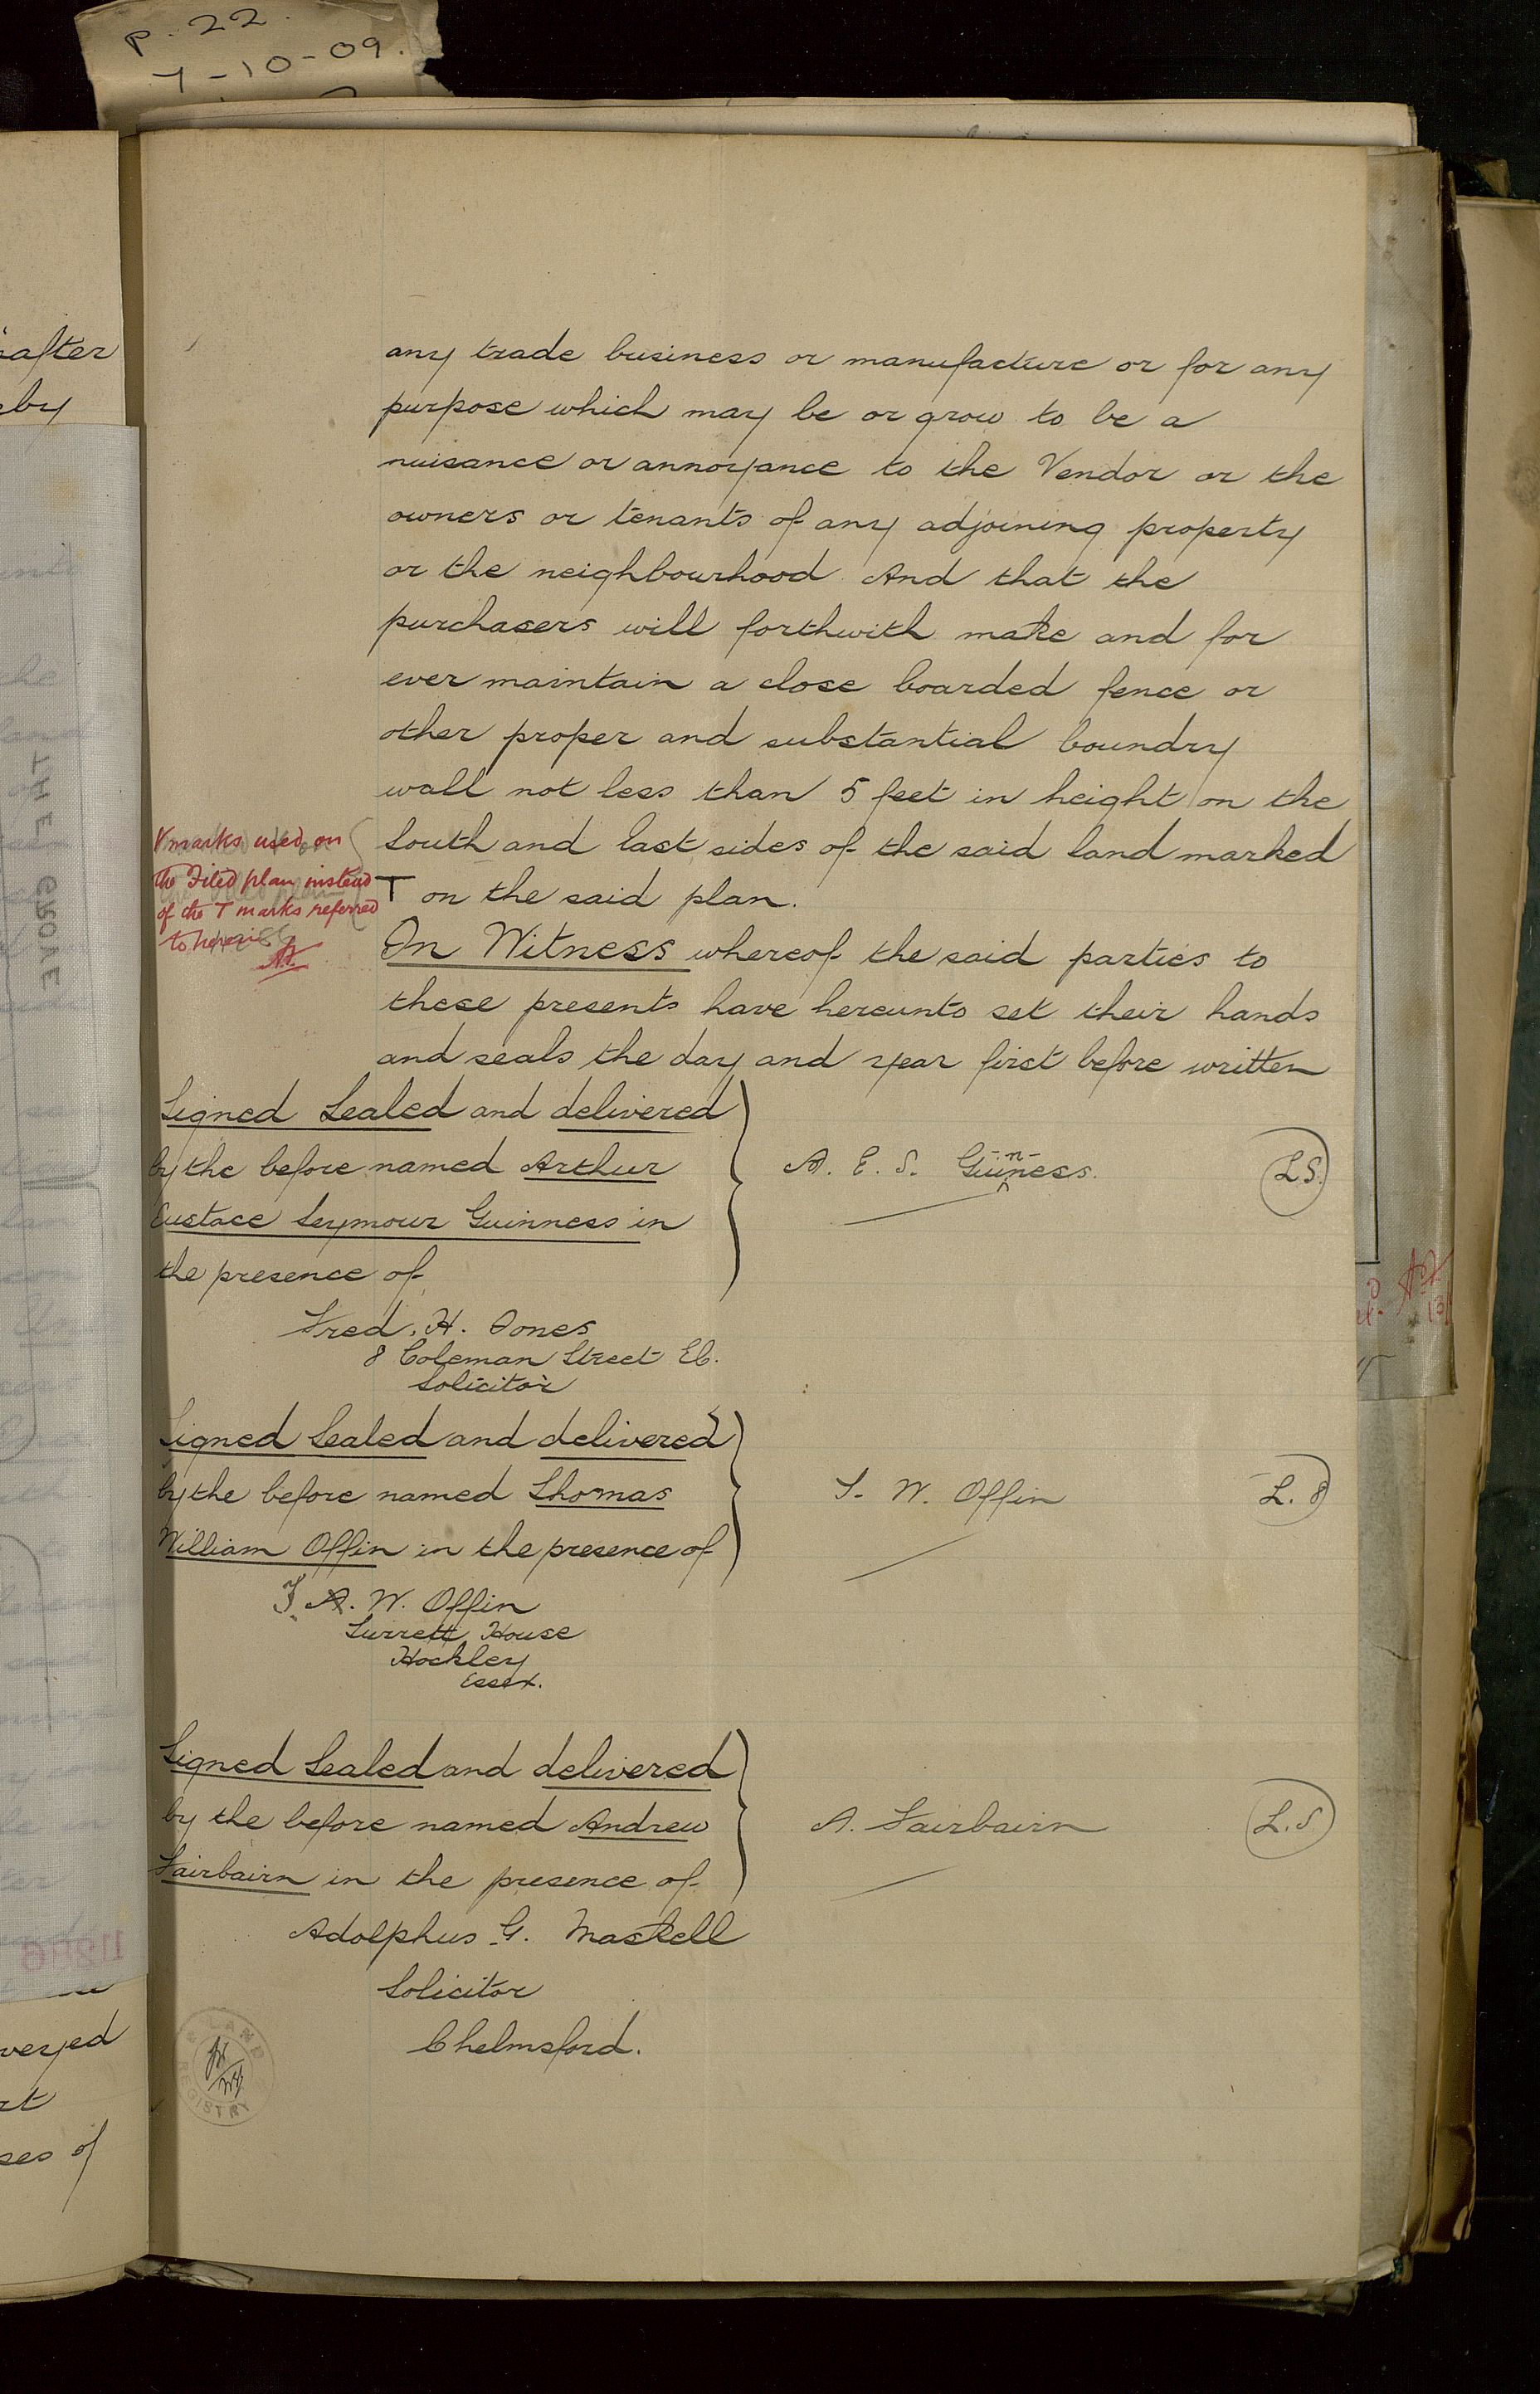 p. 22.
7-10-09.
any trade business or manufacture or for any
purpose which may be or grow to be a
nuisance or annoyance to the Vendor or the
owners or tenants of any adjoining property
or the neighbourhood And that the
purchasers will forthwith make and for
ever maintain a close boarded fence or
other proper and substantial boundry
wall not less than 5 feet in height on the
South and East sides of the said land marked
T on the said plan.
V marks used on
the Filed plan instead
of the T marks referred
to herein
In Witness whereof the said parties to
these presents have hereunto set their hands
and seals the day and year first before written
Signed Sealed and delivered
by the before named Arthur
Eustace Seymour Guinness in
the presence of
A. E. S. Guinness.
L.S.
Fred. H. Jones
8 Coleman Street EC.
Solicitor
Signed Sealed and delivered
by the before named Thomas
William Offin in the presence of
T. W. Offin
L. S
A. W. Offin
Turrett House
Hockley
Essex.
Signed Sealed and delivered
by the before named Andrew
Fairbairn in the presence of
A. Fairbairn
L.S
Adolphus G. Maskell
Solicitor
Chelmsford.
LAND REGISTRY
after
eby
THE GROVE
veyed
ses of